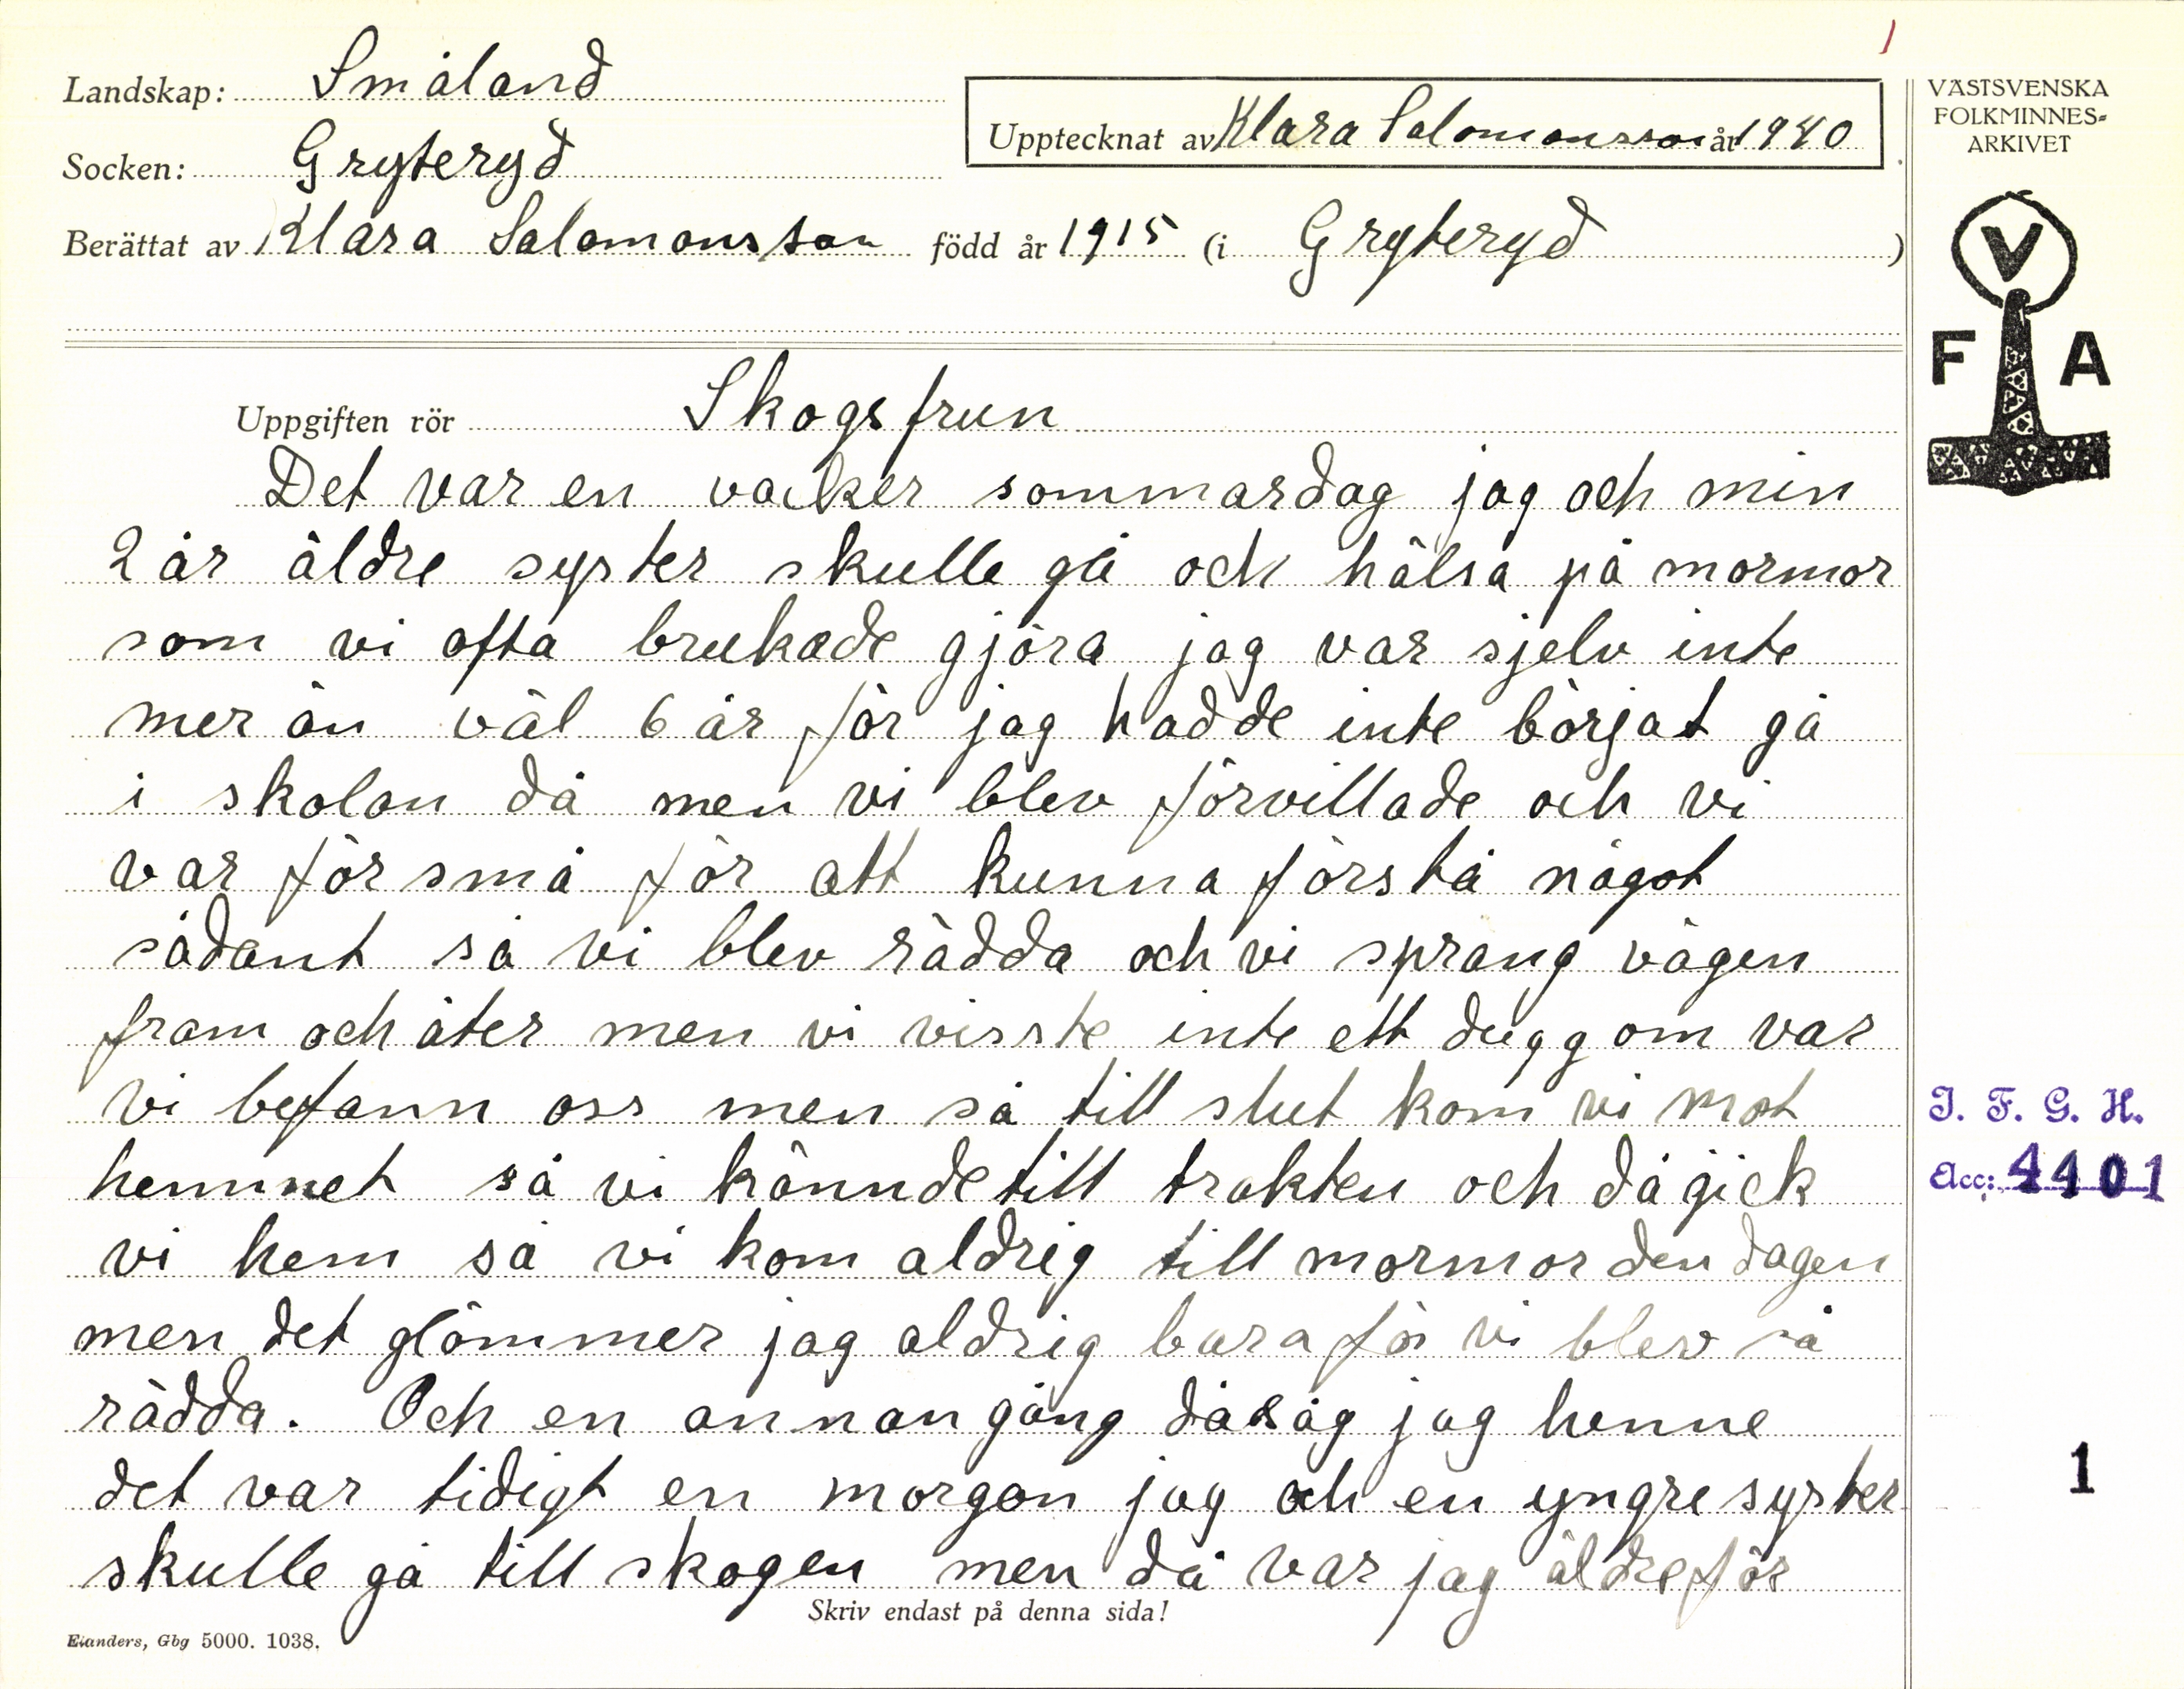 1
Landskap: Småland
Socken: Gryteryd
Upptecknat av Klara Salomonsson år 1940
Berättat av Klara Salomonsson född år 1915 (i Gryteryd)
VÄSTSVENSKA
FOLKMINNES-
ARKIVET
V
F A
Uppgiften rör Skogsfrun
Det var en vacker sommardag jag och min
2 år äldre syster skulle gå och hälsa på mormor
som vi ofta brukade gjöra jag var sjelv inte
mer än väl 6 år för jag hadde inte börjat gå
i skolan då men vi blev förvillade och vi
var för små för att kunna förstå något
sådant så vi blev rädda och vi sprang vägen
fram och åter men vi visste inte ett dugg om var
vi befann oss men så till slut kom vi mot
hemmet så vi kännde till trakten och då gick
vi hem så vi kom aldrig till mormor den dagen
men det glömmer jag aldrig bara för vi blev så
rädda. Och en annan gång då såg jag henne
det var tidigt en morgon jag och en yngre syster
skulle gå till skogen men då var jag äldre för
I. F. G. H.
Acc: 4401
1
Skriv endast på denna sida!
Elanders, Gbg 5000. 1038.